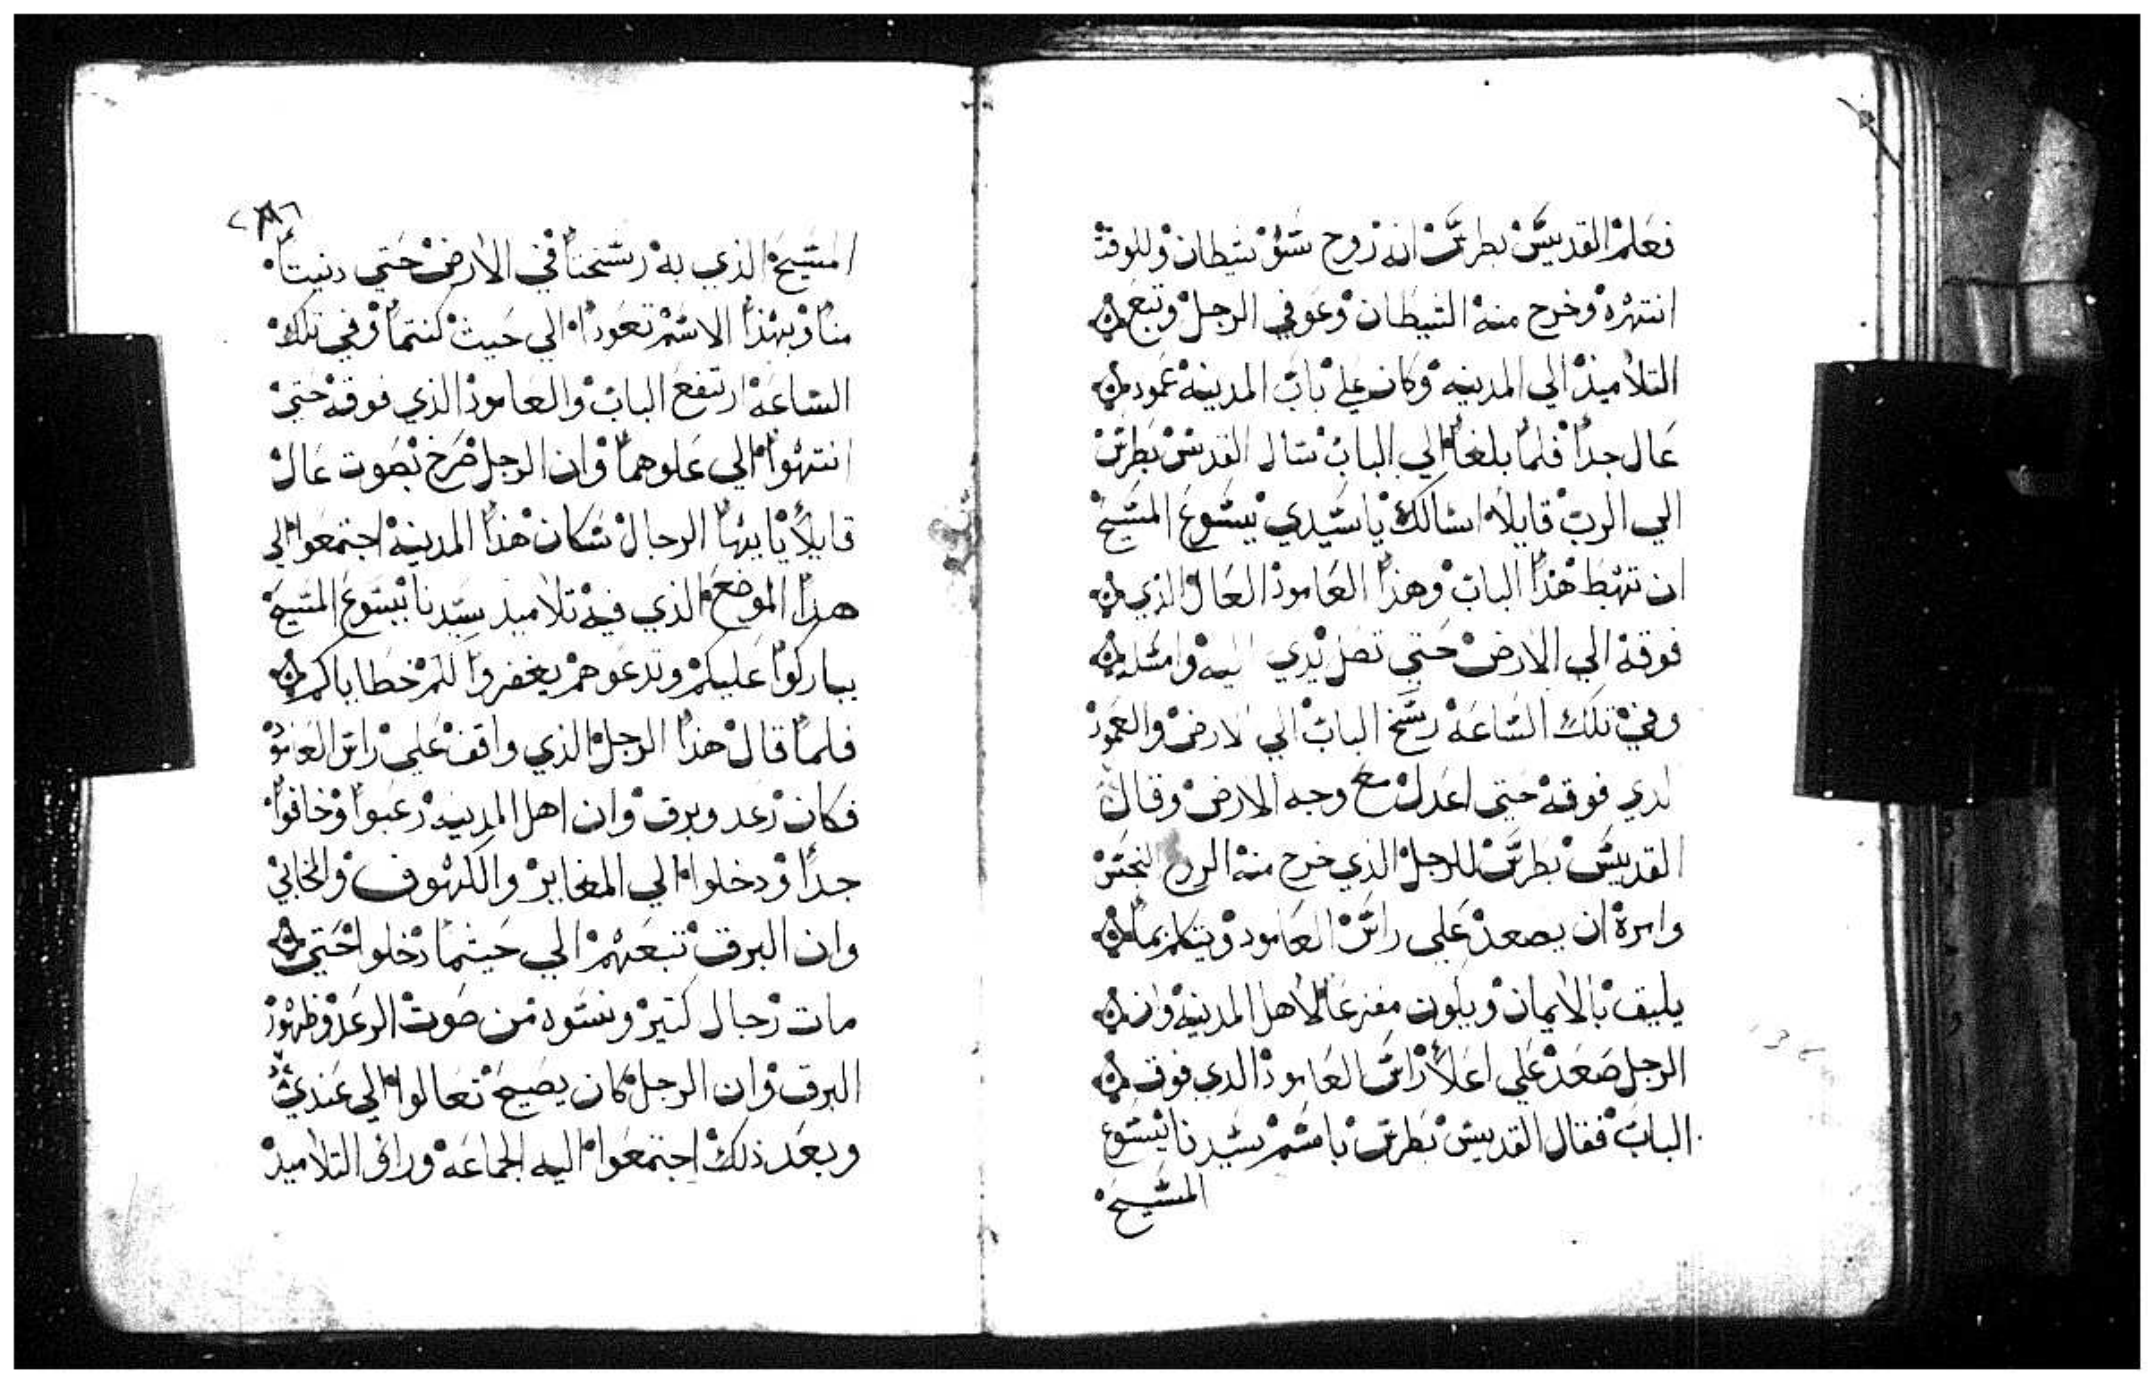 فعلم القديس بطرس انه روح سو شيطان وللوقت
انتهره وخرج منه الشيطان وعوفي الرجل وتبع
التلاميذ الي المدينه وكان علي باب المدينه عمود
عال جداً فلما بلغا الي الباب سال القديس بطرس
الي الرب قايلاً اسالك يا سيدي يسوع المسيح
ان تهبط هذا الباب وهذا العامود العال الذي
فوقه الي الارض حتي تصل يدي اليه وامثله
وفي تلك الساعه رسخ الباب الي الارض والعمود
لدي فوقه حتي اعدل مع وجه الارض وقال
القديس بطرس للرجل الذي خرج منه الروح النجس
وامره ان يصعد علي راس العامود ويتكلم بما
يليق بالايمان ويكون مفزعاً لاهل المدينه وان
الرجل صعد علي اعلا راس العامود الدي فوق
الباب فقال القديس بطرس باسم سيدنا يسوع
المسيح
المسيح الذي به رسختما في الارض حتي دنيتما
منا وبهذا الاسم تعودا الي حيث كنتما وفي تلك
الساعه ارتفع الباب والعامود الذي فوقه حتي
انتهوا الي علوهما وان الرجل صرخ بصوت عال
قايلاً يا ايها الرجال سكان هذا المدينه اجتمعوا الي
هذا الموضع الذي فيه تلاميذ سيدنا يسوع المسيح
يباركوا عليكم وتدعوهم يغفروا لكم خطاياكم
فلما قال هذا الرجل الذي واقف علي راس العامود
فكان رعد وبرق وان اهل المدينه رعبوا وخافوا
جداً ودخلوا الي المغاير والكهوف والمخابي
وان البرق تبعهم الي حيثما دخلوا حتي
مات رجال كتير ونسوه من صوت الرعد وظهور
البرق وان الرجل كان يصيح تعالوا الي عندي
وبعد ذلك اجتمعوا اليه الجماعه وراوا التلاميذ